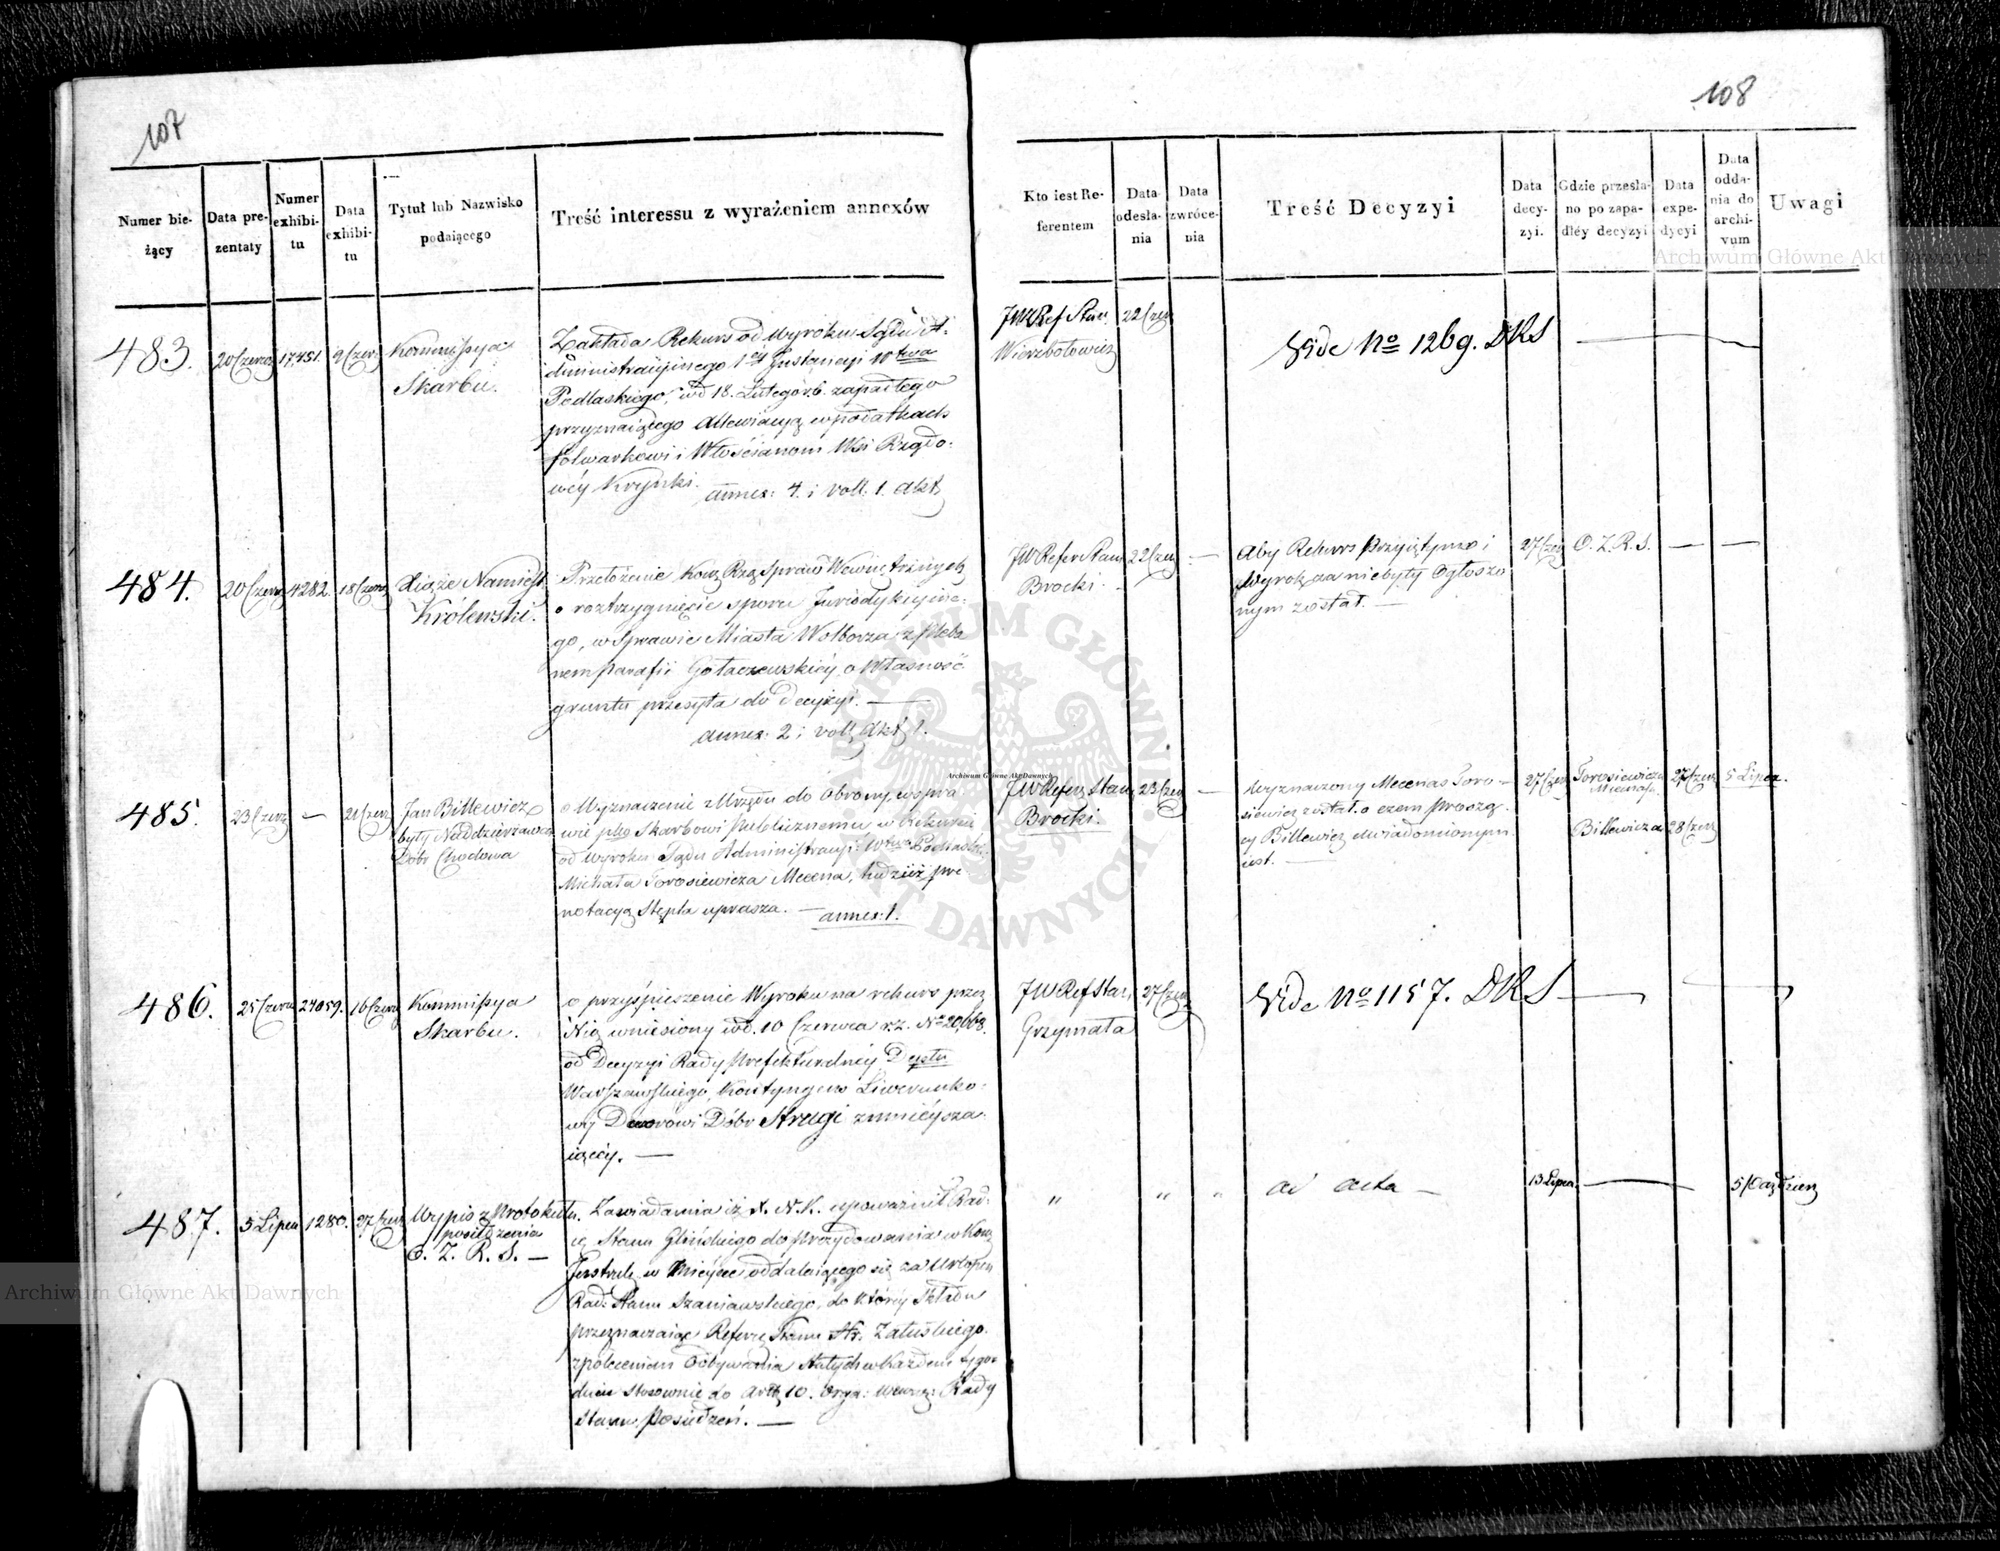 107
Numer bie-
żący
Data pre-
zentaty
Numer
exhibi-
tu
Data
exhibi-
tu
Tytuł lub Nazwisko
podaiącego
Treść interessu z wyrażeniem annexów
483.
20 Czerw
17451.
9 Czer
Kommissya
Skarbu.
Zakłada Rekurs od Wyroku Sądu A-
dministracyinego 1éj Instancyi Wtwa
Podlaskiego, wd 18. Lutego r. b. zapadłego
przyznaiącego Allewiacyą w podatkach
folwarkowi i Włościanom Wsi Rządo-
wéy Kryński.
annex: 4. i voll. 1. Akt
484.
20 Czerw
4282.
18 Czerw
Xiąże Namiest
Królewski.
Przełożenie Kom Rzą Spraw Wewnętrznych
o roztrzygnięcie sporu Juriodykcyine-
go, w Sprawie Miasta Wolborza z Pleba
nem Parafii Gołaczewskiéy o Własność
gruntu przesyła do decyzyi. —
annex: 2 i voll Akt 1.
485.
23 Czerw
—
21 Czerw
Jan Bittewicz
były Naddzierzawca
Dóbr Chodowa
o Wyznaczenie z Urzędu do obrony w spra
wie pko Skarbowi Publicznemu w Rekursie
od Wyroku Sądu Administracyi: Wtwa Podlaskie:
Michała Torosiewicza Mecena, tudzież pre
notacyą Stępla uprasza. — annex: 1.
486.
25 Czerw
27059.
16 Czerw
Kommissya
Skarbu.
o przyśpieszenie Wyroku na rekurs przez
Nią wniesiony wd. 10 Czerwca r. z. No 20,668.
od Decyzyi Rady Prefekturalnéy Deptu
Warszawskiego, Kontyngens Liwerunko-
wy Dworowi Dóbr Strugi zmnieysza-
iącéy. —
487.
5 Lipca
1280.
27 Czerw
Wypis z Protokułu
posiedzenia
O. Z. R. S. —
Zawiadamia iż X. N. K. upoważnił Rad-
cę Stanu Glińskiego do prezydowania w Kom
Instruk w mieysce oddalaiącego się za Urlopem
Rad: Stanu Szaniawskiego, do któréy Składu
przeznaczaiąc Refere Stanu Hr. Załuskiego.
z poleceniem odbywania Stałych w każdem tygo-
dniu stosownie do Art 10. Orga: Wewnę: Rady
Stanu Posiedzeń. —
108
Kto iest Re-
ferentem
Data
odesła-
nia
Data
zwróce-
nia
Treść Decyzyi
Data
decy-
zyi.
Gdzie przesła-
no po zapa-
dłéy decyzyi
Data
expe-
dycyi
Data
odda-
nia do
archi-
vum
Uwagi
JW Ref Stan.
Wierzbołowicz
22 Czer
Vide No 1269. DRS
JW Refer Stanu
Brocki.
22 Czer
—
Aby Rekurs Przyiętym i
Wyrok za niebyły Ogłoszo
nym został. —
27 Czer
O. Z. R. S.
—
—
JW Refer Stanu
Brocki.
23 Czer
—
Wyznaczony Mecenas Toro-
siewicz został, o czem Proszą-
cy Bittewicz zawiadomionym
iest. —
27 Czer
Torosiewicza
Mecenasa
27 Czer
5 Lipca.
Bittewicza
28 Czer
JW Ref Stan,
Grzymała
27 Czer
Vide No 1157. DRS
"
"
"
ad acta —
13 Lipca
5 Paździer
Archiwum Główne Akt Dawnych
Archiwum Główne Akt Dawnych
Archiwum Główne Akt Dawnych
ARCHIWUM GŁÓWNE AKT DAWNYCH